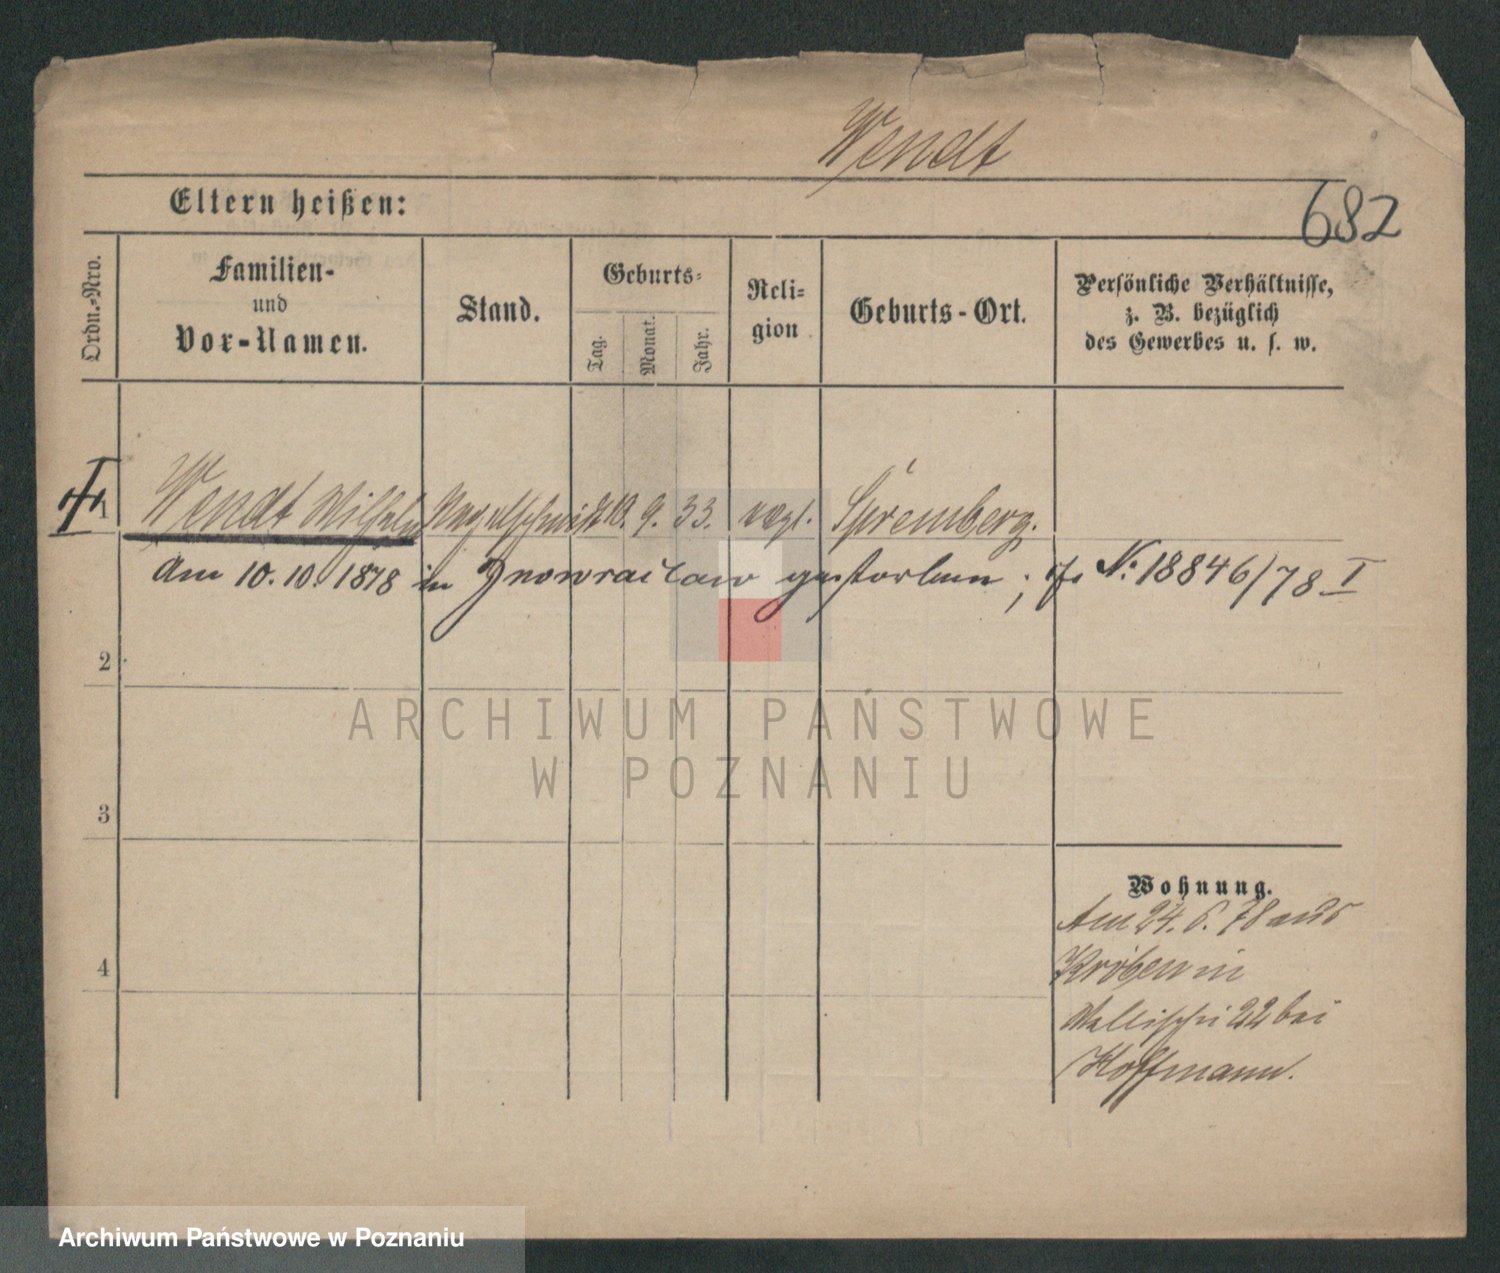 Wendt
Eltern heißen:
682
Ordn.-Nro.
Familien-
und
Vor-Namen.
Stand.
Geburts-
Tag.
Monat.
Jahr.
Reli-
gion
Geburts-Ort.
Persönliche Verhältnisse,
z. B. bezüglich
des Gewerbes u. s. w.
1 Wendt Wilhelm Nagelschmidt 10. 9. 33. evgl. Spremberg.
Am 10. 10. 1878 in Inowraclaw gestorben; N: 18846/78 I
2
3
4
Wohnung.
Am 24. 6. 78 aus
Kröben in
Wallischei 22 bei
Hoffmann.
ARCHIWUM PAŃSTWOWE
W POZNANIU
Archiwum Państwowe w Poznaniu